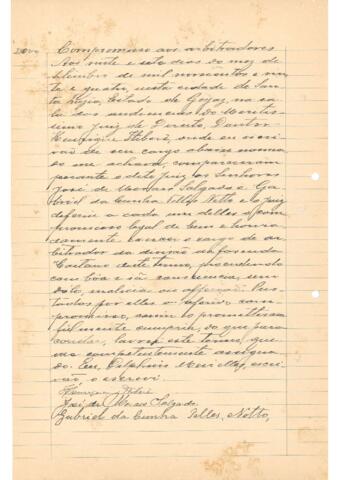 Compromisso aos arbitradores
Aos vinte e sete dias do mez de
setembro de mil novecentos e vin-
te e quatro, nesta cidade de San-
ta Luzia, Estado de Goyaz, na sa-
la das audiencias do Meritis-
simo Juiz de Direito, Doutor
Henrique Itiberê, onde eu escri-
vão de seu cargo abaixo nomea-
do me achava, compareceram
perante o dito juiz os Senhores
José de Moraes Salgado e Ga-
briel da Cunha Telles Netto e o juiz
deferiu a cada um delles o com-
promisso legal de bem e honra-
damente exercer o cargo de ar-
bitrador da divisão da fazenda
Caetano deste termo, procedendo
com bôa e sã consciencia, sem
dolo, malicia ou affeição. Pres-
tado por elles o referido com-
promisso, assim o prometteram
fielmente cumprir, do que para
constar, lavrei este termo, que
vae competentemente assigna-
do. Eu, Delphino Meirelles, escri-
vão, o escrevi.
Henrique Itiberê
José de Moraes Salgado
Gabriel da Cunha Telles, Netto,